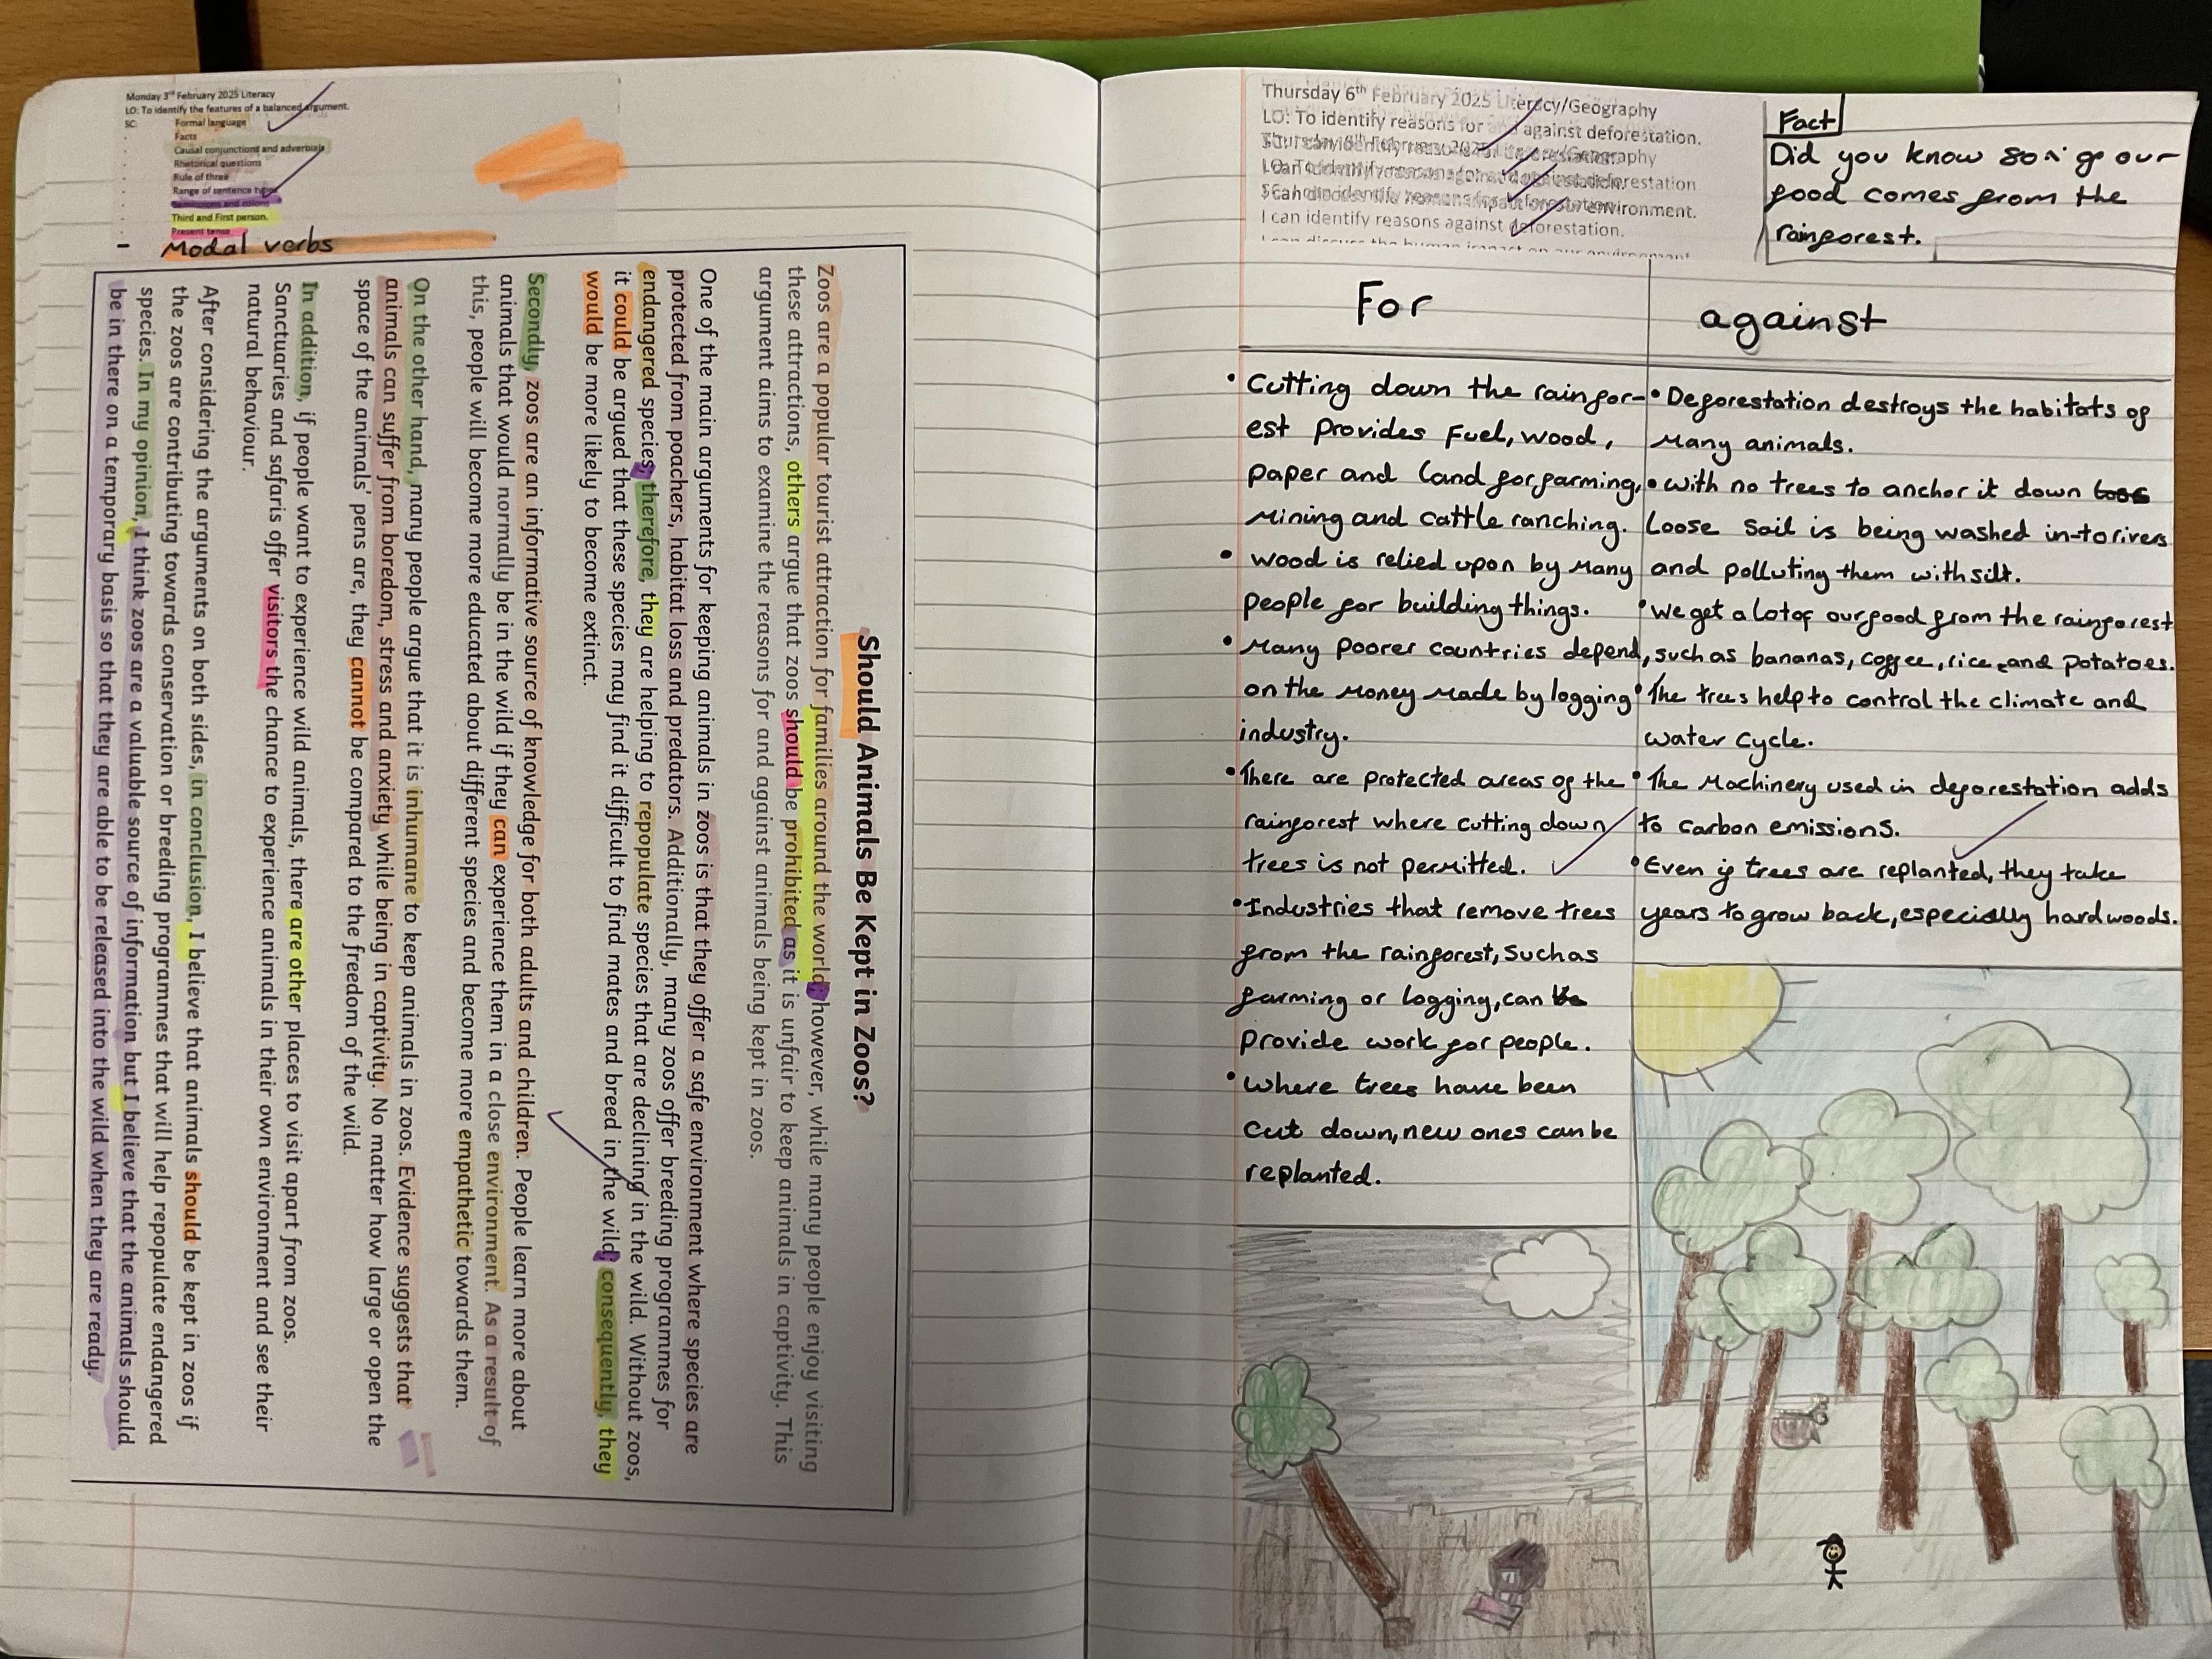 Monday 3rd February 2025 Literacy
LO: To identify the features of a balanced argument.
SC:
Formal language
Facts
Causal conjunctions and adverbials
Rhetorical questions
Rule of three
Range of sentence types
Semicolons and colons
Third and First person.
Present tense
- Modal verbs
Should Animals Be Kept in Zoos?
Zoos are a popular tourist attraction for families around the world; however, while many people enjoy visiting
these attractions, others argue that zoos should be prohibited as it is unfair to keep animals in captivity. This
argument aims to examine the reasons for and against animals being kept in zoos.
One of the main arguments for keeping animals in zoos is that they offer a safe environment where species are
protected from poachers, habitat loss and predators. Additionally, many zoos offer breeding programmes for
endangered species; therefore, they are helping to repopulate species that are declining in the wild. Without zoos,
it could be argued that these species may find it difficult to find mates and breed in the wild; consequently, they
would be more likely to become extinct.
Secondly, zoos are an informative source of knowledge for both adults and children. People learn more about
animals that would normally be in the wild if they can experience them in a close environment. As a result of
this, people will become more educated about different species and become more empathetic towards them.
On the other hand, many people argue that it is inhumane to keep animals in zoos. Evidence suggests that
animals can suffer from boredom, stress and anxiety while being in captivity. No matter how large or open the
space of the animals' pens are, they cannot be compared to the freedom of the wild.
In addition, if people want to experience wild animals, there are other places to visit apart from zoos.
Sanctuaries and safaris offer visitors the chance to experience animals in their own environment and see their
natural behaviour.
After considering the arguments on both sides, in conclusion, I believe that animals should be kept in zoos if
the zoos are contributing towards conservation or breeding programmes that will help repopulate endangered
species. In my opinion, I think zoos are a valuable source of information but I believe that the animals should
be in there on a temporary basis so that they are able to be released into the wild when they are ready.
Thursday 6th February 2025 Literacy/Geography
LO: To identify reasons for and against deforestation.
I can identify reasons against deforestation.
I can discuss the human impact on our environment
Fact
Did you know 80% of our
food comes from the
rainforest.
For
• Cutting down the rainfor-
est provides Fuel, wood,
paper and land for farming,
mining and cattle ranching.
• wood is relied upon by many
people for building things.
• Many poorer countries depend
on the money made by logging
industry.
• There are protected areas of the
rainforest where cutting down
trees is not permitted.
• Industries that remove trees
from the rainforest, such as
farming or logging, can be
provide work for people.
• Where trees have been
cut down, new ones can be
replanted.
against
• Deforestation destroys the habitats of
many animals.
• with no trees to anchor it down
Loose soil is being washed in-to rivers
and polluting them with silt.
• we get a lot of our food from the rainforest
, such as bananas, coffee, rice and potatoes.
• The trees help to control the climate and
water cycle.
• The machinery used in deforestation adds
to carbon emissions.
• Even if trees are replanted, they take
years to grow back, especially hardwoods.